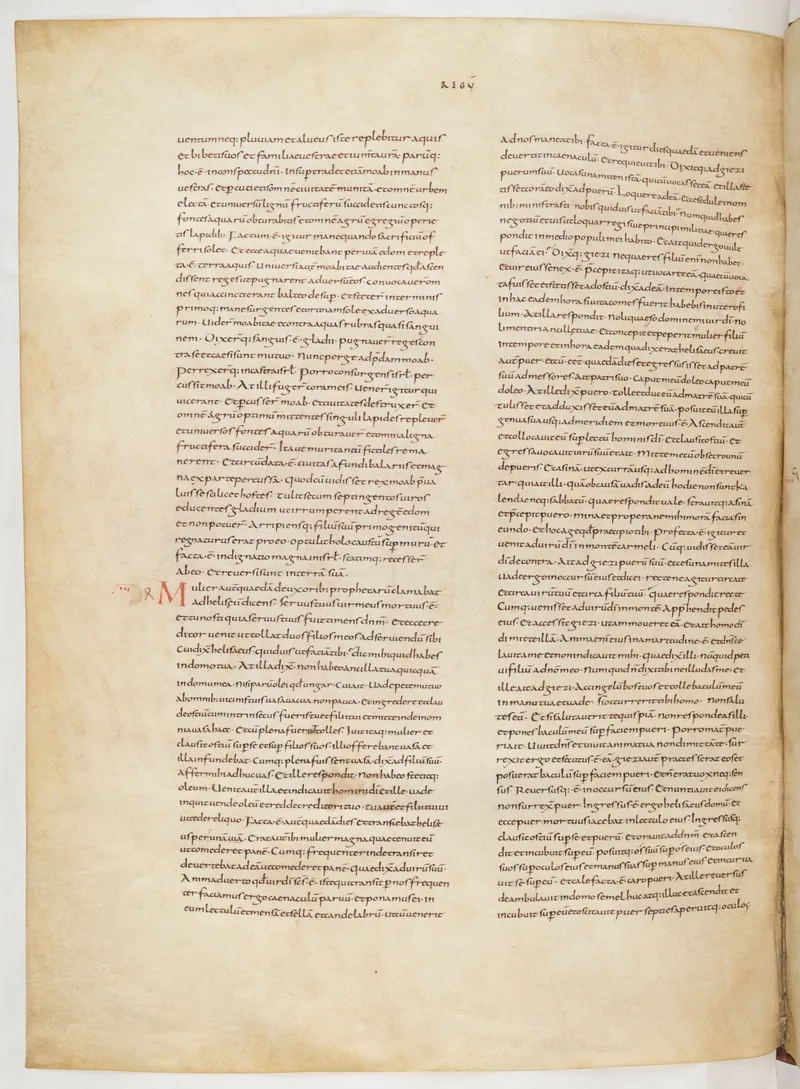 REGŪ
uentum neq; pluuiam et alueus iste replebitur aquis
et bibetis uos et familiae uestrae et iumenta uestra parūq;
hoc ē in conspectu dnī. Insuper tradet etiā moab in manus
et omnē urbem
electā et uniuersū lignū fructiferū succidetis cunctosq;
fontes aquarū obturabitis et omnē agrū egregiū operie
tis lapidib; Factum ē igitur mane quando sacrificiū of
ferri solet. Et ecce aquae ueniebant per uiā edom et reple
ta ē terra aquis Uniuersi autē moabitae audientes qd ascen
dissent reges ut pugnarent aduersū eos conuocauer om
nes qui accincti erant balteo desup. Et steter in terminis
primoq; mane surgentes et orto iam sole ex aduerso aqua
rum. Uider moabitae econtra aquas rubras quasi sangui
nem. Dixerq; sanguis ē gladii. pugnauer reges con
tra se et caesi sunt mutuo. Nunc perge ad p̄dam moab.
Perrexerq; in castra isrl. Porro consurgens isrl. per
cussit moab. At illi fuger coram eis. Uener igitur qui
uicerant. Et pcusser moab. et ciuitates destruxer. Et
omnē agrū optimū mittentes singuli lapides repleuer
et uniuersos fontes aquarū obturauer et omnia ligna
fructifera succider. Ita ut muri tantū fictiles rema
nerent. Et circūdata ē ciuitas a fundibalariis et mag
na ex parte percussa. quod cū uidisset rex moab p̄ua
luisse scilicet hostes. tulit secum septingentos uiros
educentes gladium ut irrumperent ad regē edom
et non potuer. Arripiensq; filiū suū primogenitū qui
regnaturus erat pro eo. optulit holocaustū sup murū. et
facta ē indignatio magna in isrl. statimq; recesser
Ab eo. Et reuersi sunt in terrā suā.
Mulier autē quaedā de uxorib; prophetarū clamabat
ad heliseū dicens. seruus tuus uir meus mortuus ē.
et tu nosti quia seruus tuus fuit timens dnm. Et ecce cre
ditor uenit ut tollat duos filios meos ad seruiendū sibi
Cui dix heliseus. quid uis ut faciā tibi. dic mihi quid habes
in domo tua. At illa dix. non habeo ancilla tua quicquā
in domu mea. Nisi parū olei qd ungar. Cui ait. Uade pete mutuo
ab omnib; uicinis tuis uasa uacua non pauca. Et ingredere et clau
de ostiū cum intrinsecus fueris tu et filii tui et mitte inde in om
nia uasa haec. Et cū plena fuer tolles. Iuit itaq; mulier et
clausit ostiū sup se et sup filios suos. illi offerebant uasa et
illa infundebat. Cumq; plena fuissent uasa. dix ad filiū suū.
Affer mihi adhuc uas. Et ille respondit. Non habeo stetitq;
oleum. Uenit aut illa et indicauit homini dī. Et ille. uade
inquit uende oleū et redde creditori tuo. tu aut et filii tui ui
uite de reliquo. Facta ē aut quaedā dies et transiebat helise
us per sunā. Erat aut ibi mulier magna quae tenuit eū
ut comederet panē. Cumq; frequenter inde transiret
deuertebat ad eā ut comederet panē. Quae dix ad uirū suū.
Animaduerto qd uir dī scs ē. iste qui transit p nos frequen
ter faciamus ergo caenaculū paruū. et ponamus ei in
eum lectulū et mensā et sellā et candelabrū. ut cū uenerit
Ad nos maneat ibi. facta ē igitur dies quaedā et ueniens
deuertit in caenaculū. Et requieuit ibi. Dixitq; ad giezi
puerum suū. Uoca sunamiten istā. qui cū uocasset eā. et illa ste
tisset corā eo dix ad puerū. Loquere ad eā. ecce sedule in om
nib; ministrasti nobis quid uis ut faciā tibi. numquid habes
negotiū et uis ut loquar regi siue principi militiae. quae res
pondit in medio populi mei habito. Et ait quid ergo uult
ut faciā ei. Dixq; giezi ne quaeras filiū enī non habet.
Et uir eius senex ē. p̄cepit itaq; ut uocaret eā. quae cū uoca
ta fuisset et stetisset ad ostiū. dix ad eā. In tempore isto et
in hac eadem hora si uita comes fuerit habebis in utero fi
lium. At illa respondit. Noli quaeso domine mi uir dī. no
li mentiri ancillae tuae. Et concepit et peperit mulier filiū
in tempore et in hora eadem qua dixerat heliseus. creuit
autē puer. Et cū eēt quaedā dies et egressus isset ad patrē
suū ad messores. Ait patri suo. Caput meū doleo caput meū
doleo. At ille dix puero. tolle et duc eū ad matrē suā. qui cū
tulisset et adduxisset eū ad matrē suā. posuit eū illa sup
genua sua usq; ad meridiem et mortuus ē. Ascendit aut
et collocauit eū sup lectū hominis dī. Et clausit ostiū. et
egressa uocauit uirū suū et ait. Mitte mecū obsecro unū
de pueris. Et asinā. ut excurrā usq; ad hominē dī et reuer
tar. qui ait illi. quā ob causā uadis ad eū hodie non sunt ka
lendae neq; sabbatū. quae respondit uale. strauitq; asinā
et p̄cepit puero. mina et propera ne mihi morā facias in
eundo. Et hoc age qd p̄cipio tibi. Profecta ē igitur et
uenit ad uirū dī in montē carmeli. Cūq; uidisset eā uir
dī de contra. Ait ad giezi puerū suū. ecce sunamitis illa
Uade ergo in occursū eius et dic ei. recte ne agitur circa te
Et circa uirū tuū et circa filiū tuū. quae respondit recte
Cumq; uenisset ad uirū dī in monte. Apphendit pedes
eius. Et accessit giezi. ut ammoueret eā. Et ait homo dī
dimitte illā. Anima enī eius in amaritudine ē. et dns ce
lauit a me et non indicauit mihi. Quae dix illi. nūquid peti
ui filiū a dnō meo. Numquid nō dixi tibi ne illudas me. Et
ille ait ad giezi. Accinge lūbos tuos et tolle baculū meū
in manu tua et uade. si occurrerit tibi homo. Non salu
tes eū. Et si salutauerit te quispiā. non respondeas illi.
et pones baculū meū sup faciem pueri. Porro mat pue
ri ait. Uiuit dns et uiuit anima tua non dimittā te. sur
rexit ergo et secutus ē eā. giezi aut praecesserat eos et
posuerat baculū sup faciem pueri. et non erat uox neq; sen
sus. Reuersusq; ē in occursū eius. Et nuntiauit ei dicens
non surrex puer. Ingressus ē ergo heliseus domū. et
ecce puer mortuus iacebat in lectulo eius. Ingressusq;
clausit ostiū sup se et puerū. Et orauit ad dnm. et ascen
dit et incubuit sup eū. posuitq; os suū sup os eius et oculos
suos sup oculos eius et manus suas sup manus eius et incurua
uit se sup eū. et calefacta ē caro pueri. At ille reuersus
deambulauit in domo semel huc atq; illuc et ascendit et
incubuit sup eū et oscitauit puer septies aperuitq; oculos.